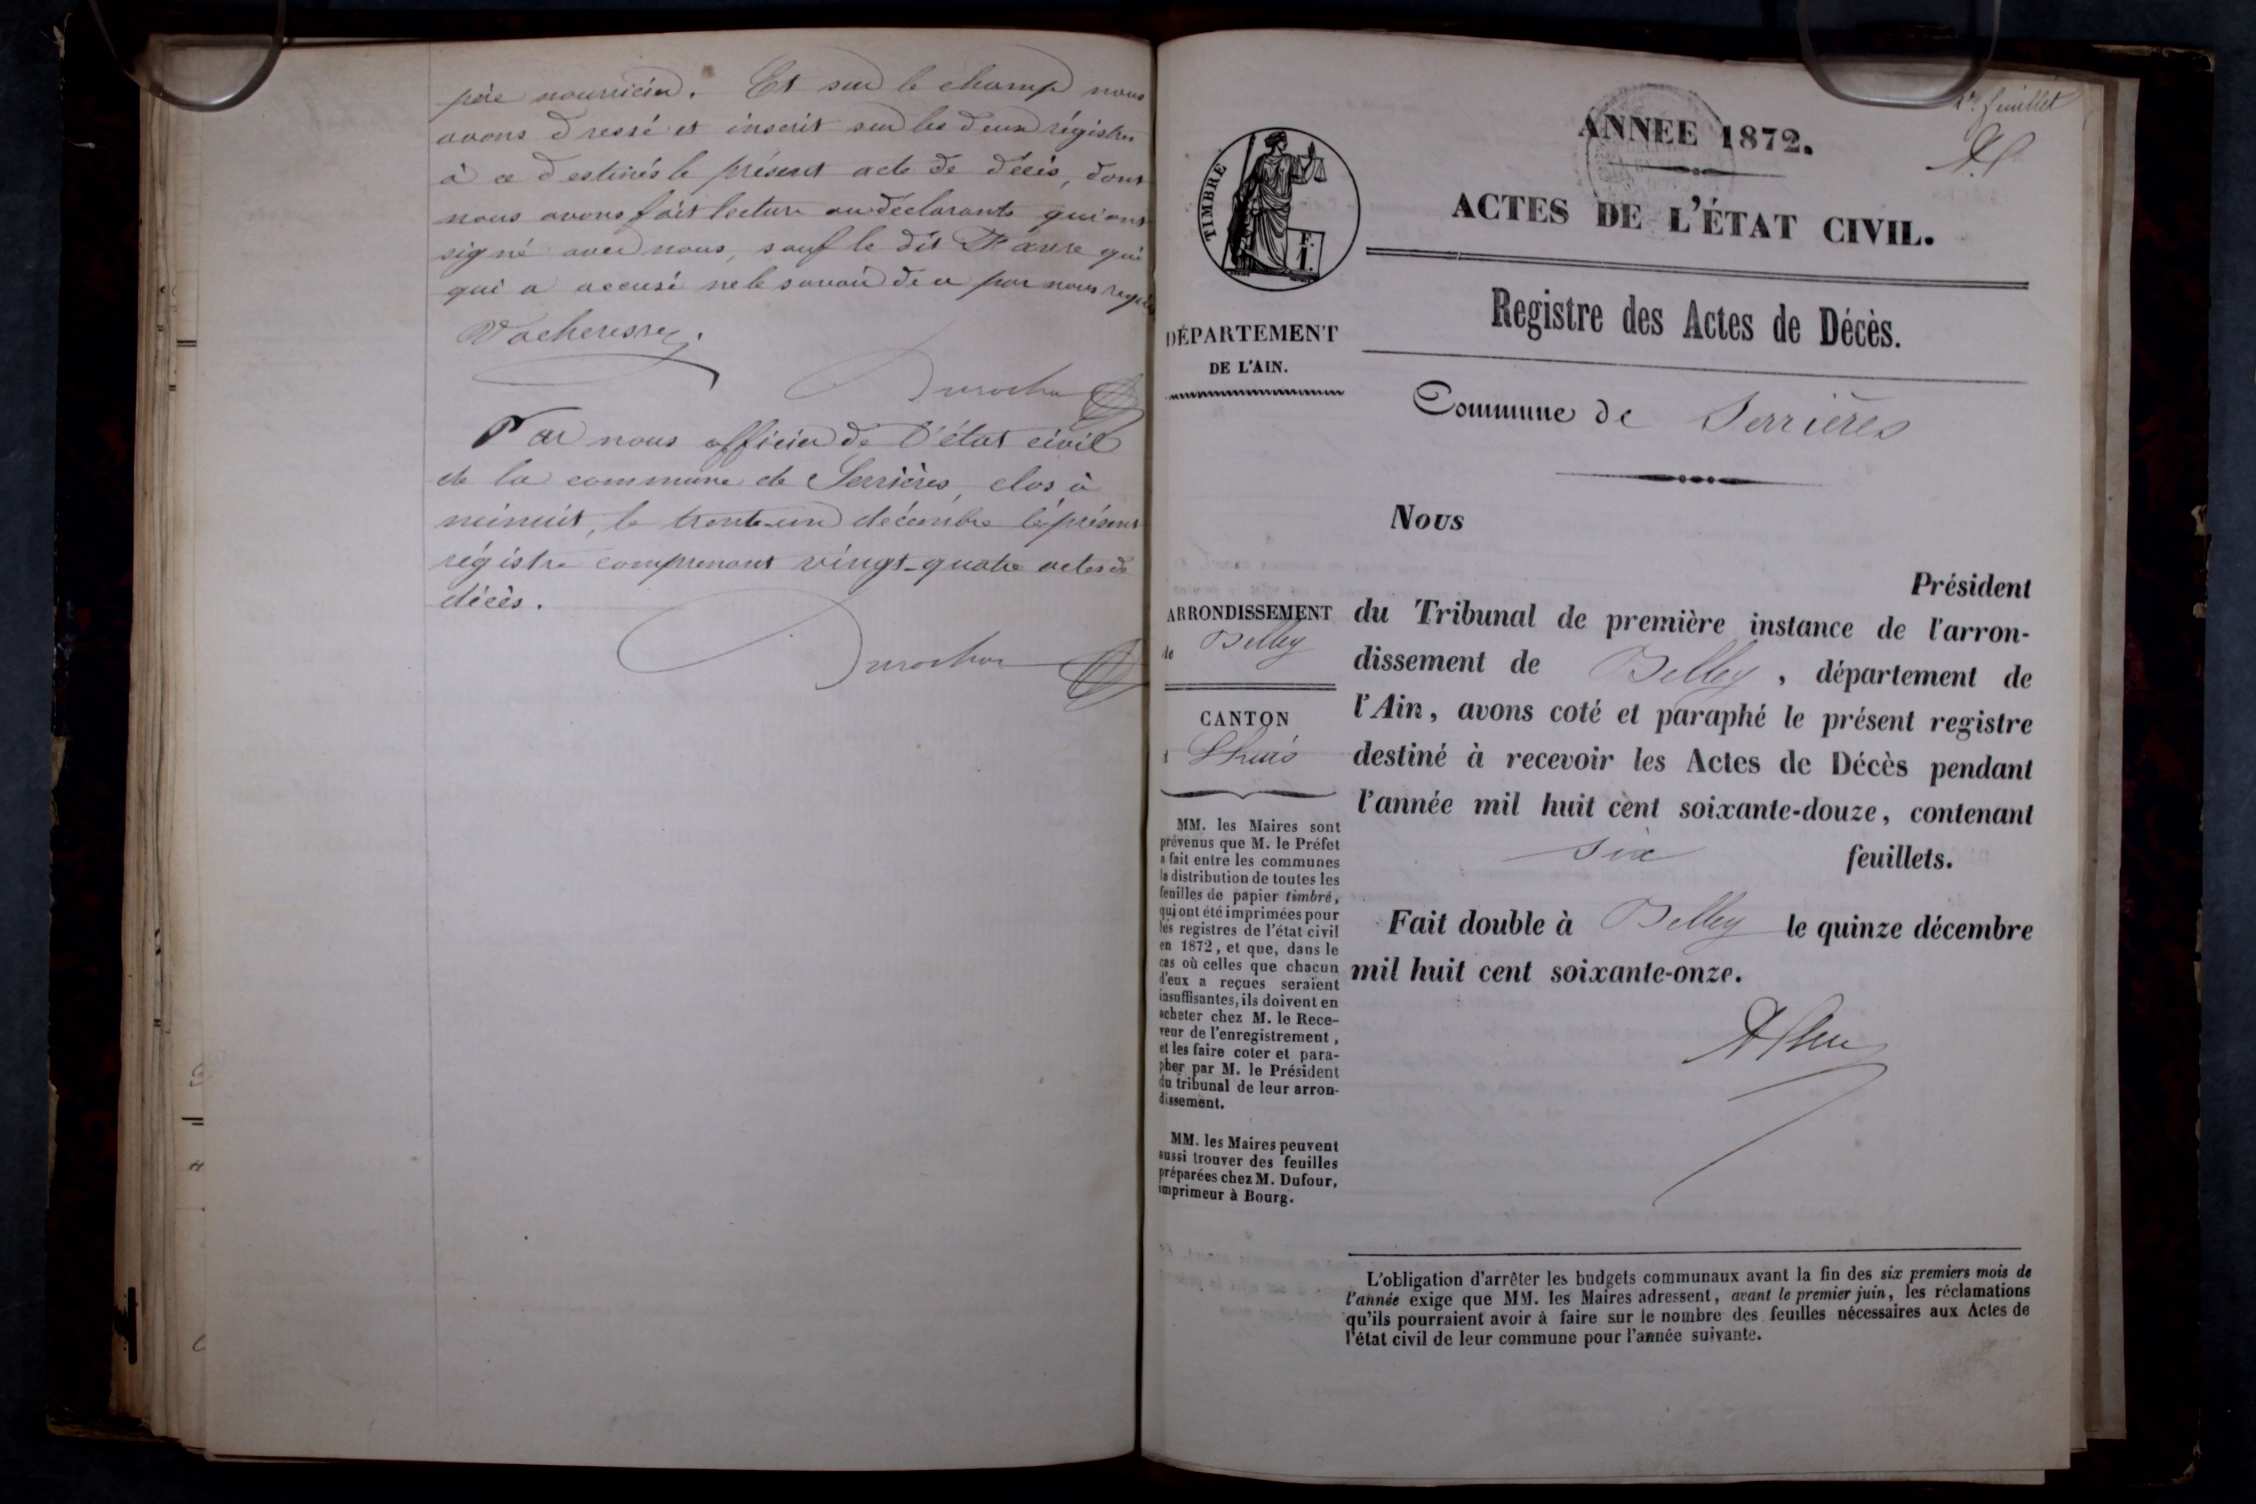 père nourricier. Et sur le champ nous
avons dressé et inscrit sur les deux régistres
à ce destinés le présent acte de décès, dont
nous avons fait lecture au declarants qui ont
signé avec nous, sauf le dit Favre qui
qui a accusé ne le savoir de ce par nous requis
Vacheresse
Durochat
Par nous officier de l'état civil
de la commune de Serrières, clos à
minuit, le trente-un décembre le présent
régistre comprenant vingt-quatre actes de
décès.
Durochat
1er feuillet
ANNEE 1872.
ACTES DE L'ÉTAT CIVIL.
Registre des Actes de Décès.
Commune de Serrières
TIMBRE
F.
1.
DÉPARTEMENT
DE L'AIN.
ARRONDISSEMENT
de Belley
CANTON
Lhuis
MM. les Maires sont
prévenus que M. le Préfet
a fait entre les communes
la distribution de toutes les
feuilles de papier timbré,
qui ont été imprimées pour
les registres de l'état civil
en 1872, et que, dans le
cas où celles que chacun
d'eux a reçues seraient
insuffisantes, ils doivent en
acheter chez M. le Rece-
veur de l'enregistrement,
et les faire coter et para-
pher par M. le Président
du tribunal de leur arron-
dissement.
MM. les Maires peuvent
aussi trouver des feuilles
préparées chez M. Dufour,
imprimeur à Bourg.
Nous
Président
du Tribunal de première instance de l'arron-
dissement de Belley, département de
l'Ain, avons coté et paraphé le présent registre
destiné à recevoir les Actes de Décès pendant
l'année mil huit cent soixante-douze, contenant
six feuillets.
Fait double à Belley le quinze décembre
mil huit cent soixante-onze.
L'obligation d'arrêter les budgets communaux avant la fin des six premiers mois de
l'année exige que MM. les Maires adressent, avant le premier juin, les réclamations
qu'ils pourraient avoir à faire sur le nombre des feuilles nécessaires aux Actes de
l'état civil de leur commune pour l'année suivante.